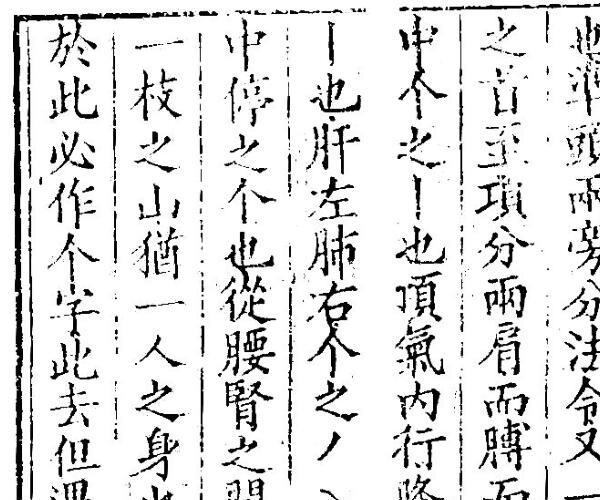 也準頭兩旁分法令又一
之首至項分兩肩而膊而
中个之丨也項氣内行
丨也肝左肺右个之丿
中停之个也從腰腎之間
一枝之山猶一人之身
於此必作个字此去但遇